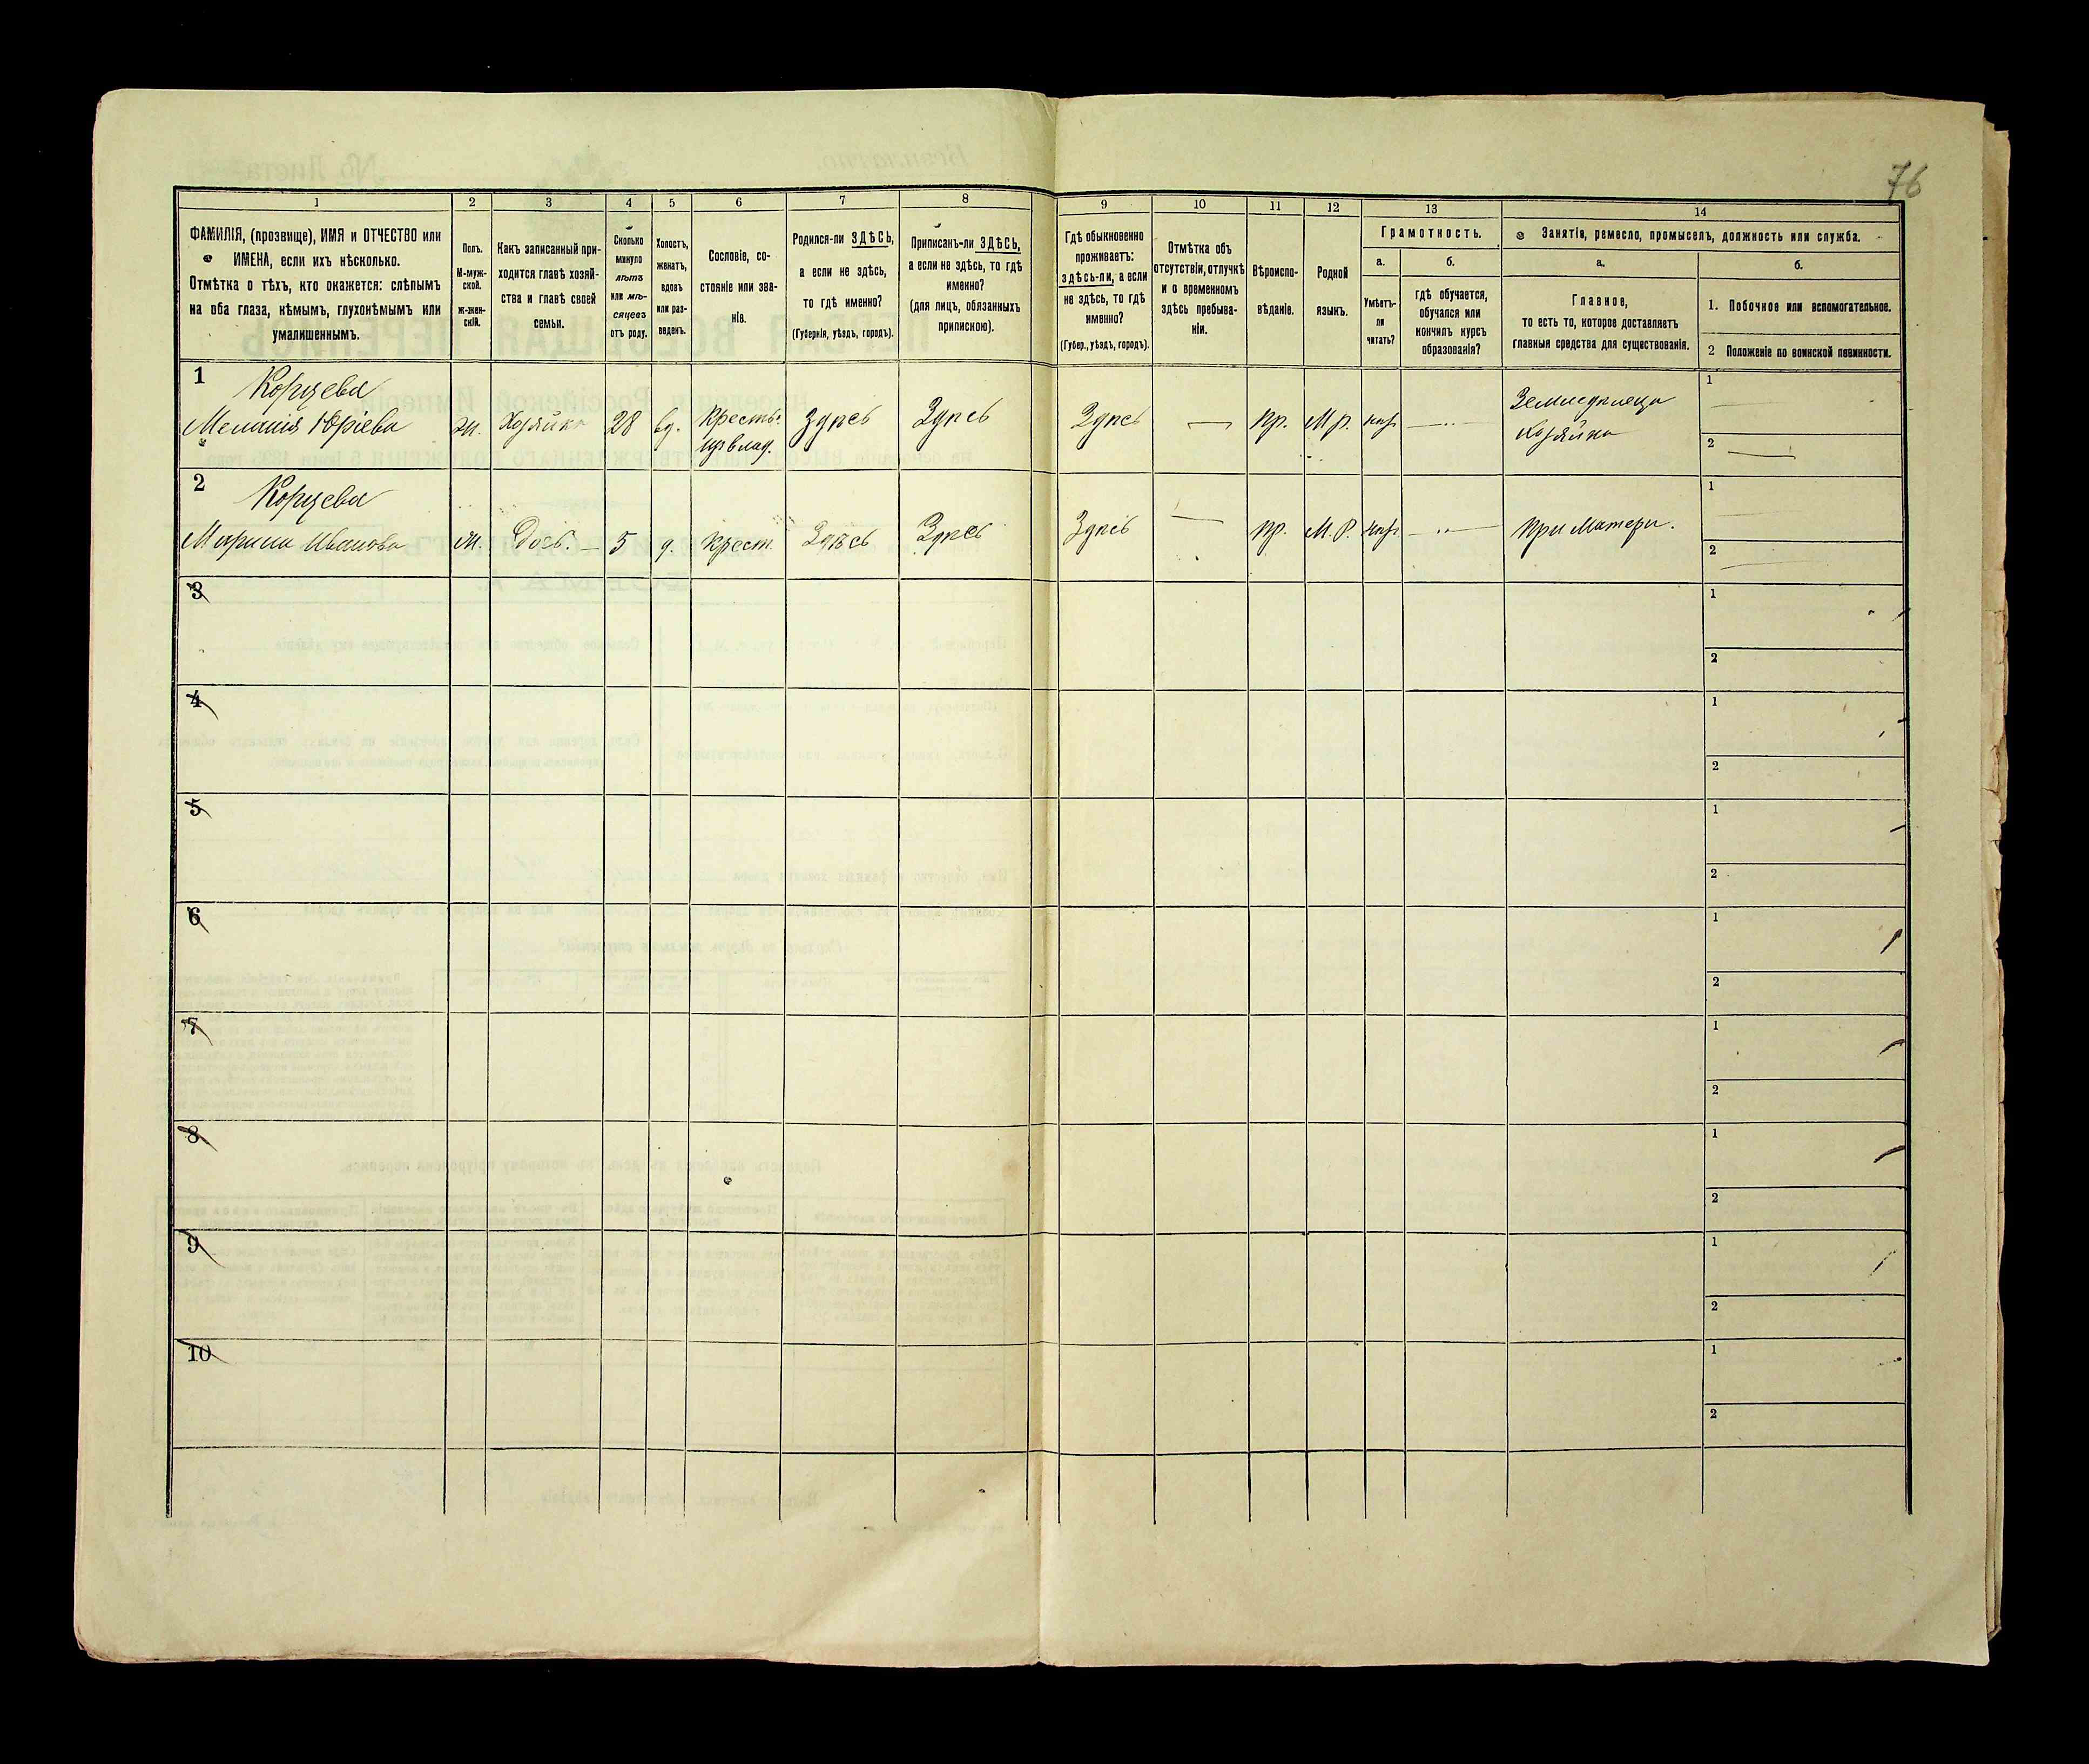 76
1 2 3 4 5 6 7 8 9 10 11 12 13 14
ФАМИЛІЯ, (прозвище), ИМЯ и ОТЧЕСТВО или
ИМЕНА, если ихъ нѣсколько.
Отмѣтка о тѣхъ, кто окажется: слѣпымъ
на оба глаза, нѣмымъ, глухонѣмымъ или
умалишеннымъ.
Полъ.
М-муж-
ской.
ж-жен-
скій.
Какъ записанный при-
ходится главѣ хозяй-
ства и главѣ своей
семьи.
Сколько
минуло
лѣтъ
или мѣ-
сяцевъ
отъ роду.
Холостъ,
женатъ,
вдовъ
или раз-
веденъ.
Сословіе, со-
стояніе или зва-
ніе.
Родился-ли ЗДѢСЬ,
а если не здѣсь,
то гдѣ именно?
(Губернія, уѣздъ, городъ).
Приписанъ-ли ЗДѢСЬ,
а если не здѣсь, то гдѣ
именно?
(для лицъ, обязанныхъ
припискою).
Гдѣ обыкновенно
проживаетъ:
здѣсь-ли, а если
не здѣсь, то гдѣ
именно?
(Губер., уѣздъ, городъ).
Отмѣтка объ
отсутствіи, отлучкѣ
и о временномъ
здѣсь пребыва-
ніи.
Вѣроиспо-
вѣданіе.
Родной
языкъ.
Грамотность.
а.
Умѣетъ-
ли
читать?
б.
гдѣ обучается,
обучался или
кончилъ курсъ
образованія?
Занятія, ремесло, промыселъ, должность или служба.
а.
Главное,
то есть то, которое доставляетъ
главныя средства для существованія.
б.
1. Побочное или вспомогательное.
2 Положеніе по воинской повинности.
1 Корцева
Меланія Юріева жн. Хозяйка 28 вд. Кресть. Здѣсь Здѣсь Здѣсь — пр. М р. Землед
изъ влад. хозяйка
1
2
2 Корцева
Марина Иванова Дочь. — 5 д. Крест. Здѣсь Здѣсь Здѣсь — пр. М. Р. при Матери.
1
2
3
1
2
4
1
2
5
1
2
6
1
2
7
1
2
8
1
2
9
1
2
10
1
2